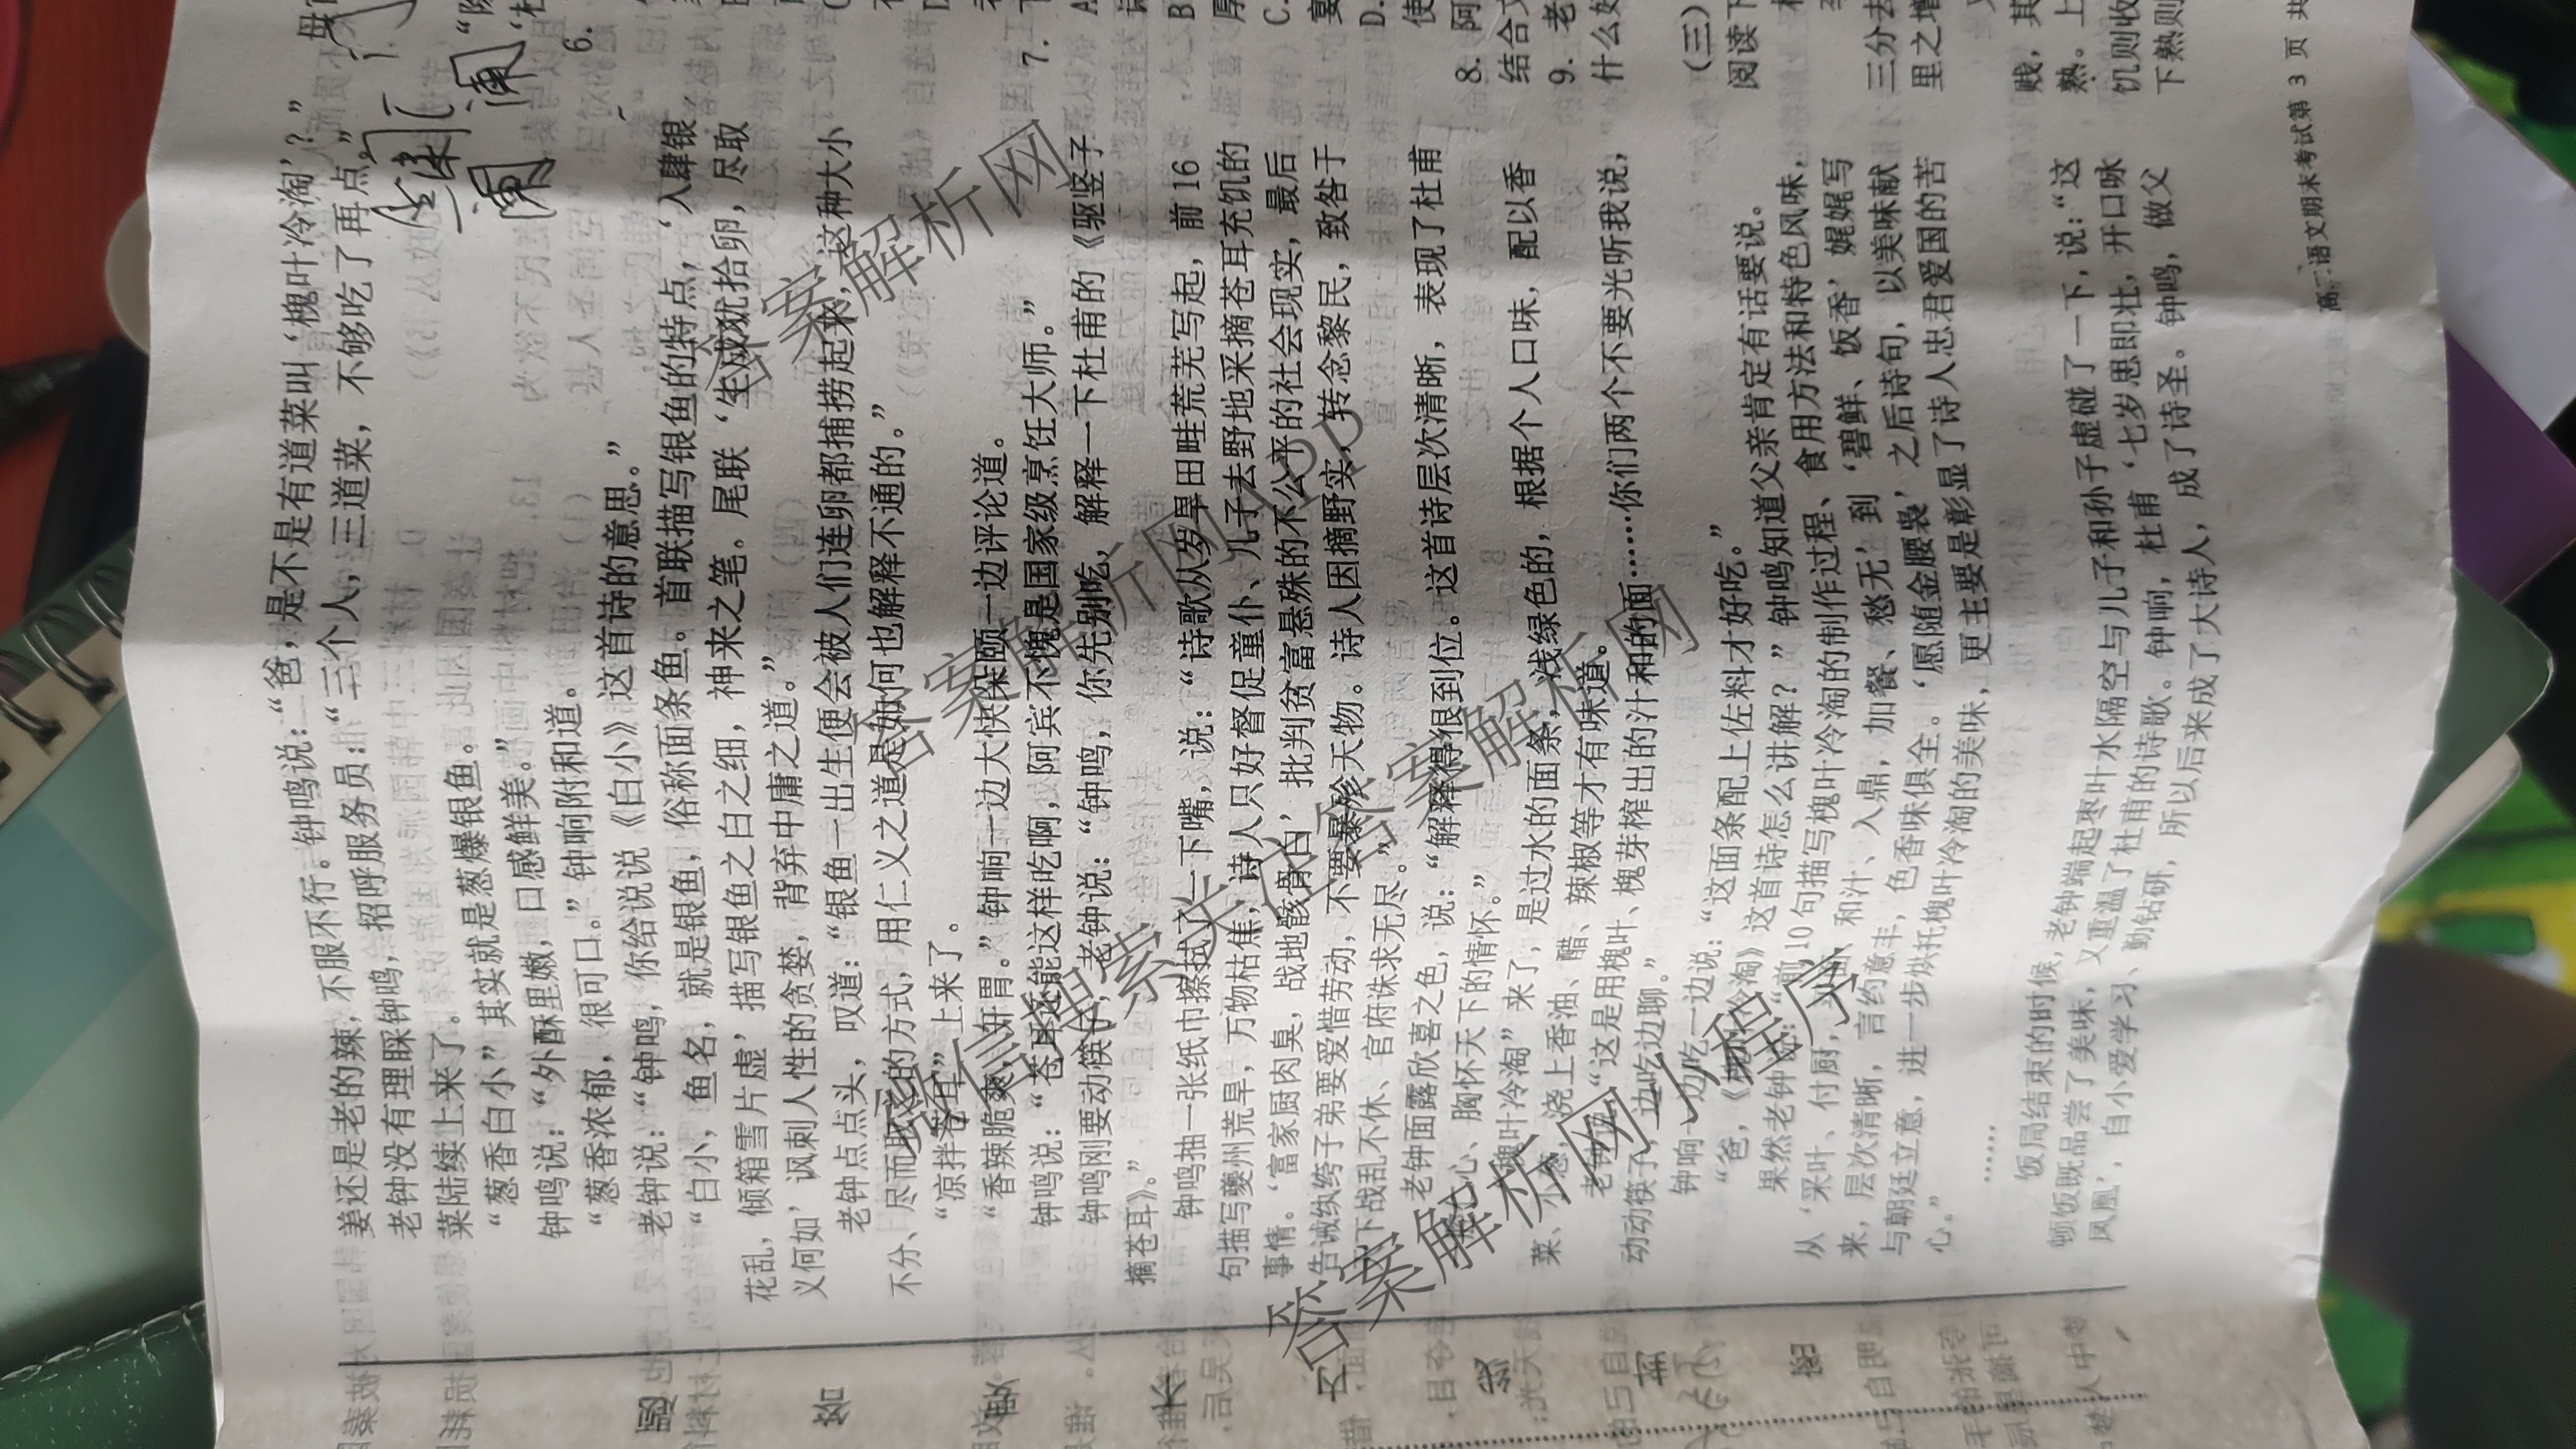 姜还是老的辣,不服不行。钟鸣说:“爸,是不是有道菜叫‘槐叶冷淘’?”
老钟没有理睬钟鸣,招呼服务员:“三个人,三道菜,不够吃了再点。”
菜陆续上来了。
“葱香白小”其实就是葱爆银鱼。
钟鸣说:“外酥里嫩,口感鲜美。”
“葱香浓郁,很可口。”钟响附和道。
老钟说:“钟鸣,你给说说《白小》这首诗的意思。”
“白小,鱼名,就是银鱼,俗称面条鱼。首联描写银鱼的特点,‘入肆银
花乱,倾箱雪片虚’描写银鱼之白之细,神来之笔。尾联‘生成犹拾卵,尽取
义何如’讽刺人性的贪婪,背弃中庸之道。”
老钟点点头,叹道:“银鱼一出生便会被人们连卵都捕捞起来,这种大小
不分、尽而取之的方式,用仁义之道是如何也解释不通的。”
“凉拌苍耳”上来了。
“香辣脆爽,开胃。”钟响一边大快朵颐一边评论道。
钟鸣说:“苍耳还能这样吃啊,阿宾不愧是国家级烹饪大师。”
钟鸣刚要动筷子,老钟说:“钟鸣,你先别吃,解释一下杜甫的《驱竖子
摘苍耳》。”
钟鸣抽一张纸巾擦拭了一下嘴,说:“诗歌从岁旱田畦荒芜写起,前16
句描写夔州荒旱,万物枯焦,诗人只好督促童仆、儿子去野地采摘苍耳充饥的
事情。‘富家厨肉臭,战地骸骨白’批判贫富悬殊的不公平的社会现实,最后
告诫纨绔子弟要爱惜劳动,不要暴殄天物。诗人因摘野实,转念黎民,致咎于
天下战乱不休、官府诛求无尽。”
老钟面露欣喜之色,说:“解释得很到位。这首诗层次清晰,表现了杜甫
心、胸怀天下的情怀。”
“槐叶冷淘”来了,是过水的面条,浅绿色的,根据个人口味,配以香
菜、小葱,浇上香油、醋、辣椒等才有味道。
老钟说:“这是用槐叶、槐芽榨出的汁和的面……你们两个不要光听我说,
动动筷子,边吃边聊。”
钟响一边吃一边说:“这面条配上佐料才好吃。”
“爸,《槐叶冷淘》这首诗怎么讲解?”钟鸣知道父亲肯定有话要说。
果然老钟说:“前10句描写槐叶冷淘的制作过程、食用方法和特色风味,
从‘采叶、付厨,和面、和汁、入鼎,加餐、愁无’到‘碧鲜、饭香’娓娓写
来,层次清晰,言约意丰,色香味俱全。‘愿随金腰袅’之后诗句,以美味献
与朝廷立意,进一步烘托槐叶冷淘的美味,更主要是彰显了诗人忠君爱国的苦
心。”
……
饭局结束的时候,老钟端起枣叶水隔空与儿子和孙子虚碰了一下,说:“这
顿饭既品尝了美味,又重温了杜甫的诗歌。钟响,杜甫‘七岁思即壮,开口咏
凤凰’,自小爱学习、勤钻研,所以后来成了大诗人,成了诗圣。钟鸣,做父
高二语文期末考试第 3 页 共
6.
7.
A
B
C.
D.
使
8. 阿
结合文
9. 老
什么好
(三)
阅读下
三分去
里之增
贱,其
熟。上
饥则收
下熟则
答案解析网